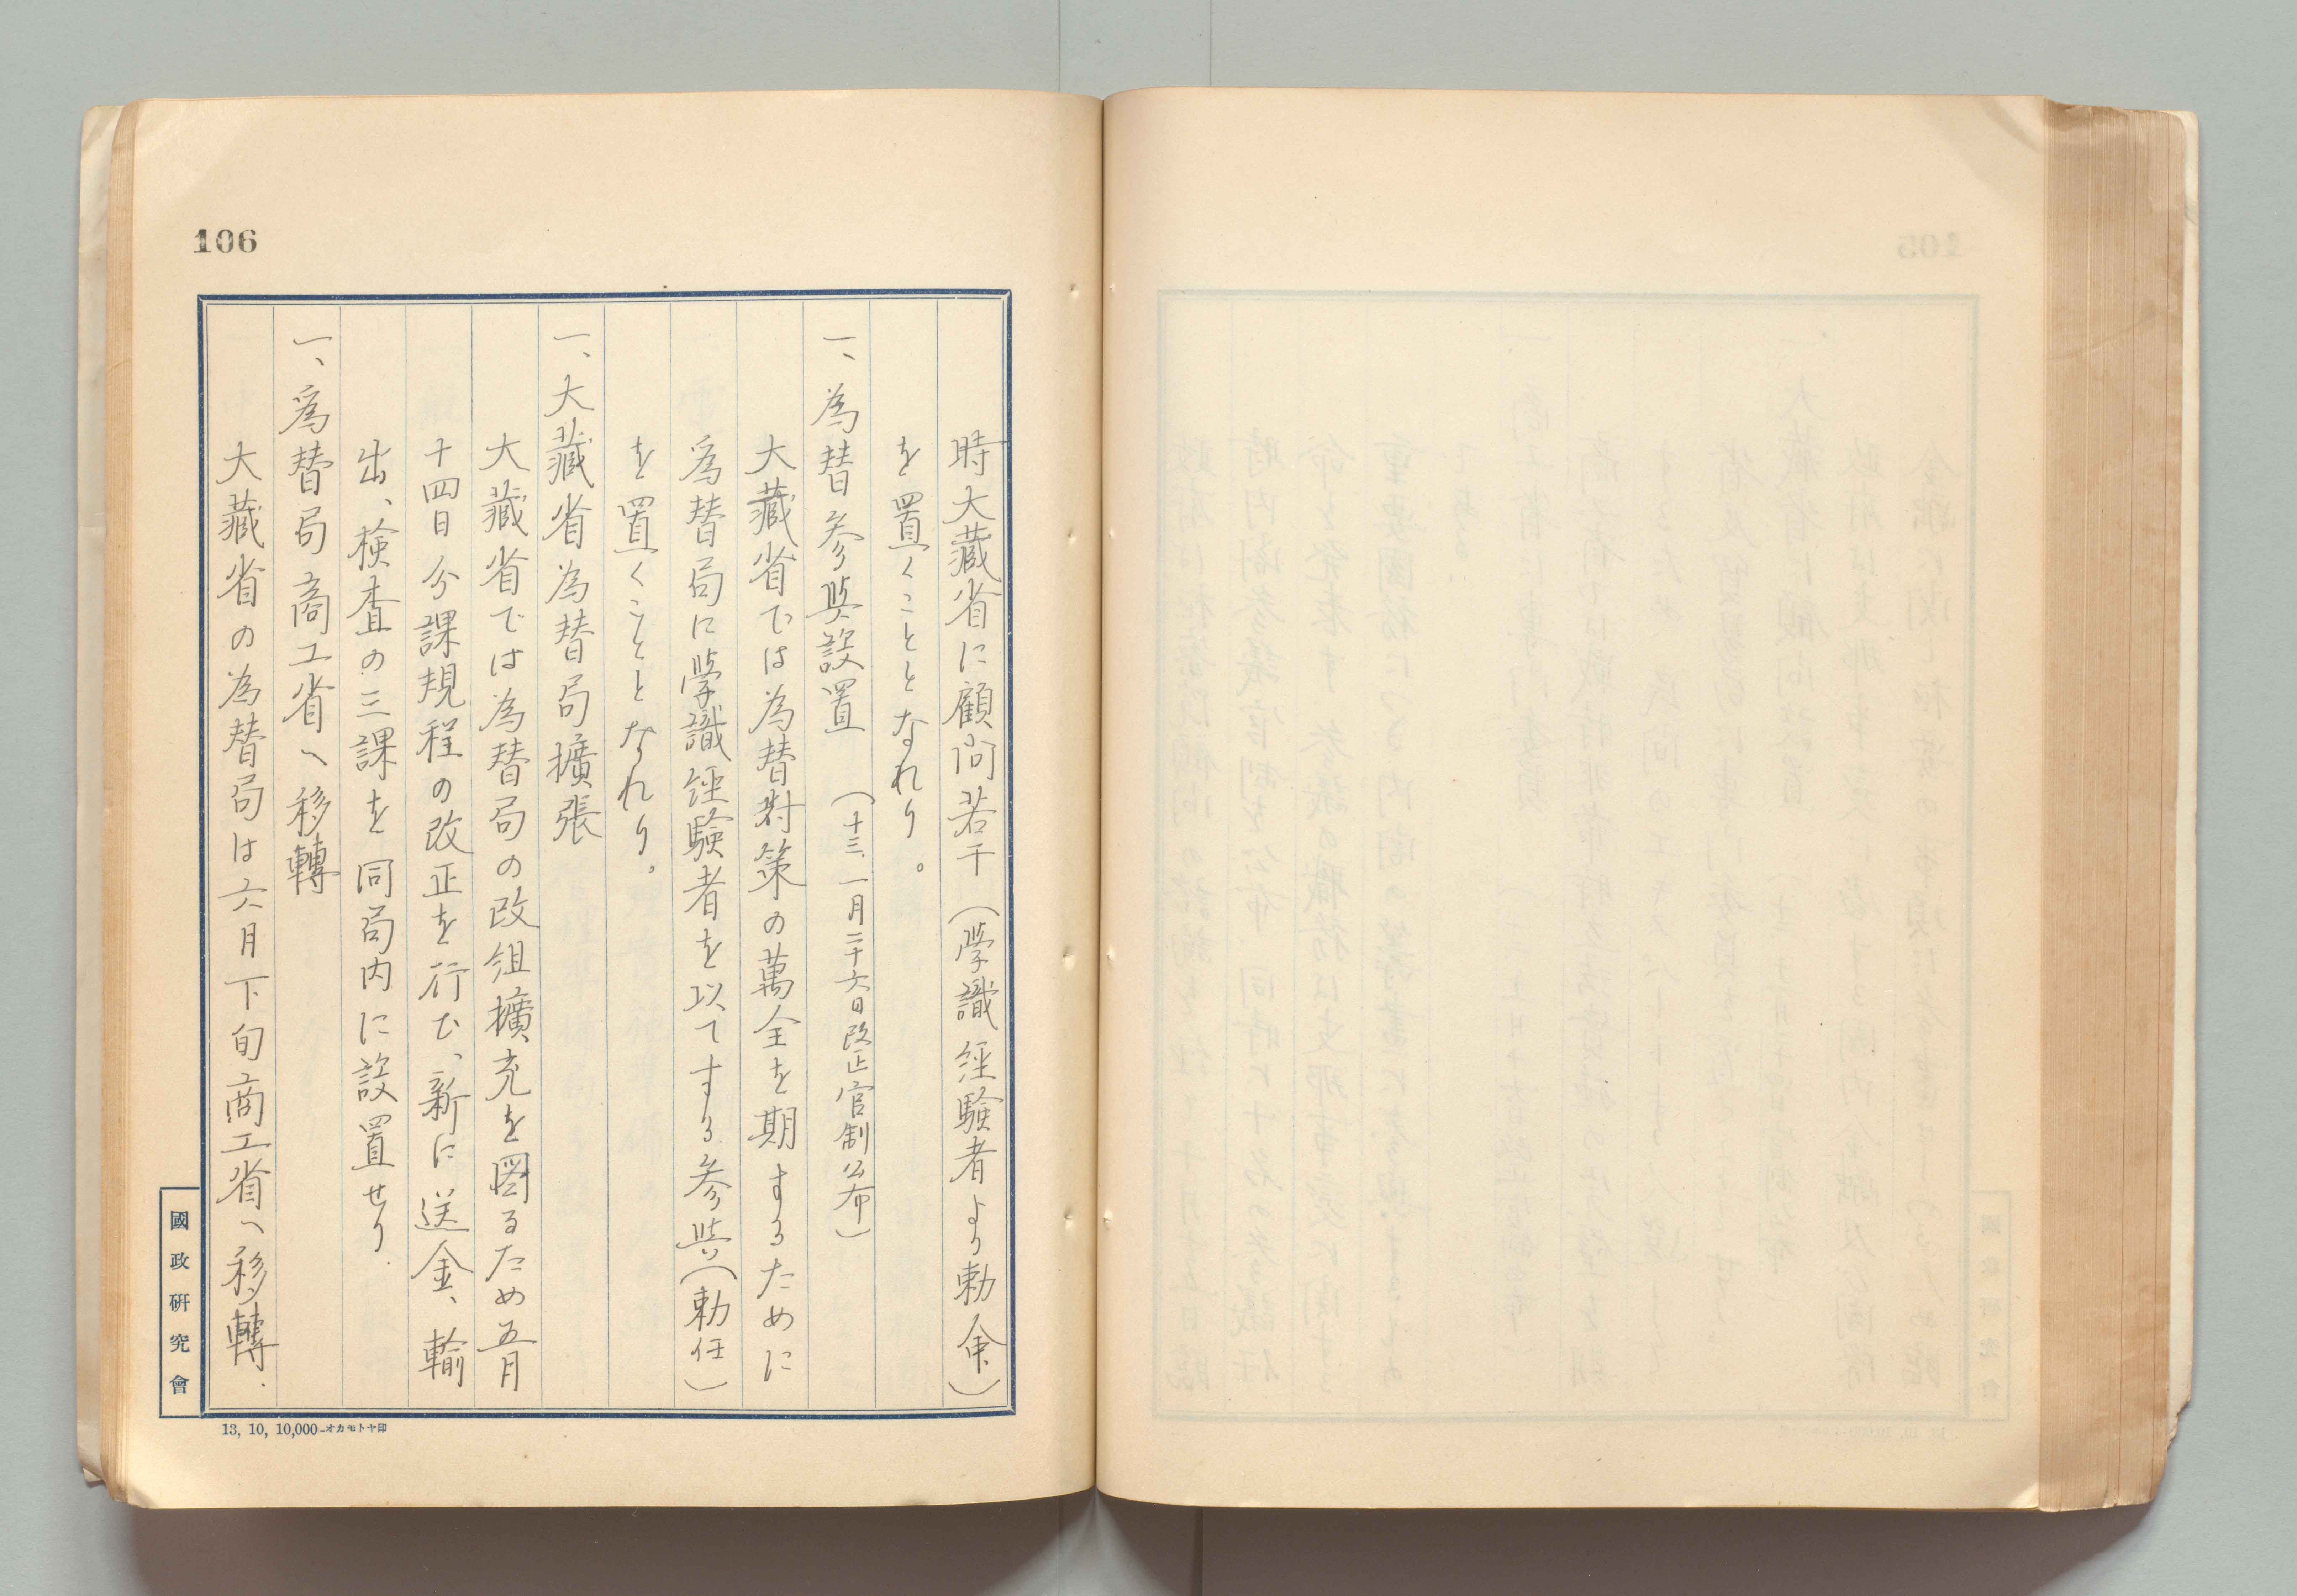 106
時大藏省に顧問若干（學識経験者より勅命）
を置くこととなれり。
一、為替参與設置　（十三、一月二十六日改正官制公布）
大藏省では為替対策の萬全を期するために
為替局に學識経験者を以てする参與（勅任）
を置くこととなれり。
一、大藏省為替局擴張
大藏省では為替局の改組擴充を圖るため五月
十四日分課規程の改正を行ひ、新に送金、輸
出、検査の三課を同局内に設置せり.
一、為替局商工省へ移轉
大藏省の為替局は六月下旬商工省へ移轉.
國政研究會
13, 10, 10,000-オカモトヤ印